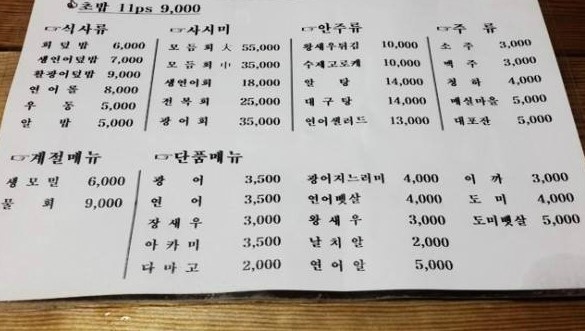 초밥 11ps 9,000
☞식사류
회덮밥 6,000
생연어덮밥 7,000
활광어덮밥 9,000
연어롤 8,000
우동 5,000
알밥 5,000
☞사시미
모듬회大 55,000
모듬회中 35,000
생연어회 18,000
전복회 25,000
광어회 35,000
☞안주류
왕새우튀김 10,000
수제고로케 10,000
알탕 14,000
대구탕 14,000
연어샐러드 13,000
☞주류
소주 3,000
맥주 3,000
청하 4,000
매실마을 5,000
대포잔 5,000
☞계절메뉴
생모밀 6,000
물회 9,000
☞단품메뉴
광어 3,500
연어 3,500
장새우 3,000
아카미 3,500
다마고 2,000
광어지느러미 4,000
연어뱃살 4,000
왕새우 3,000
날치알 2,000
연어알 5,000
이까 3,000
도미 4,000
도미뱃살 5,000